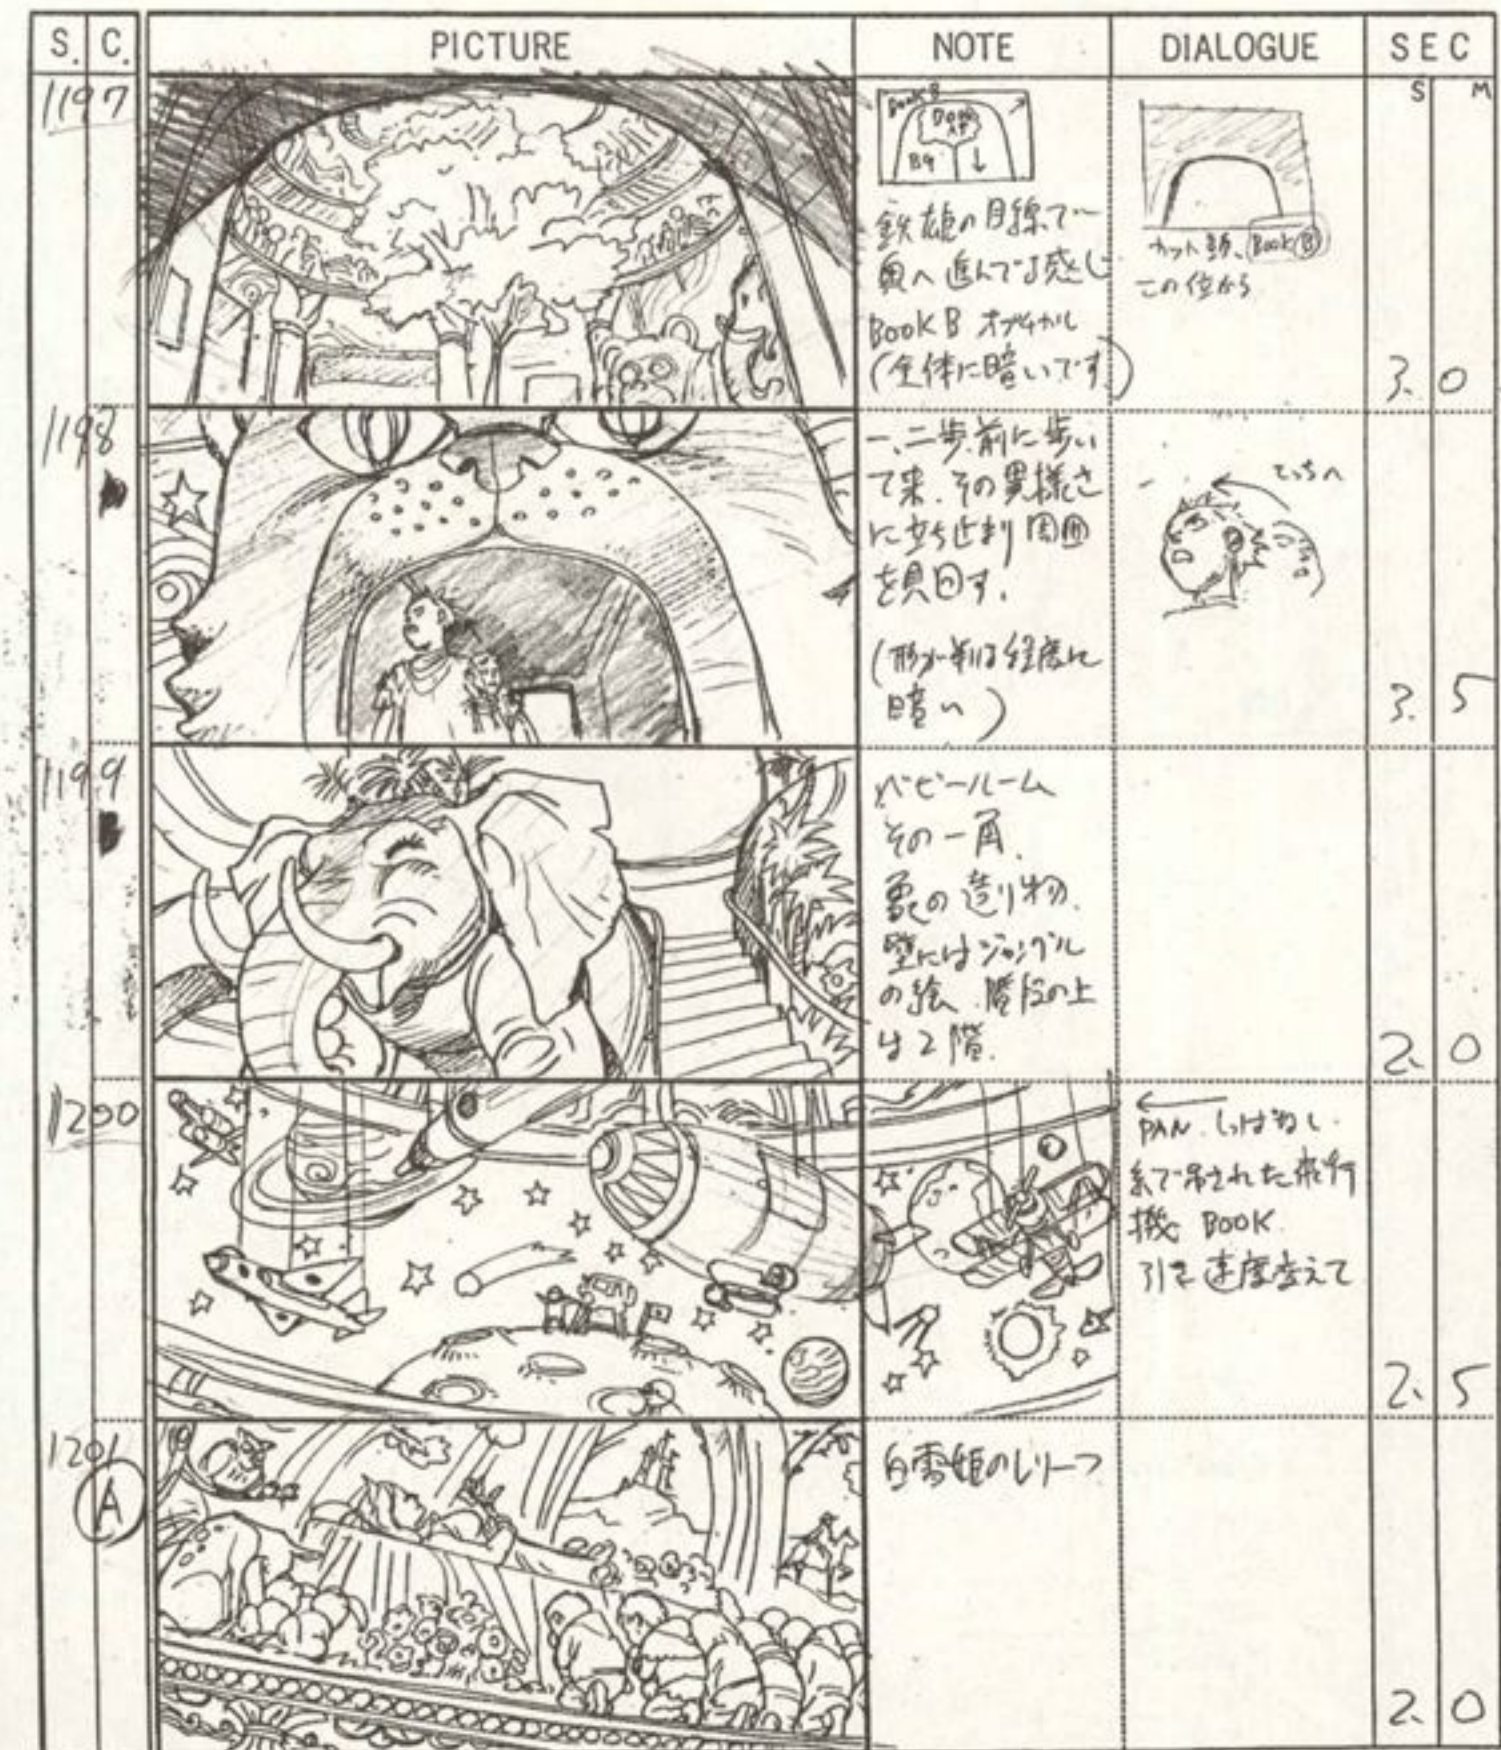 S. C. PICTURE NOTE DIALOGUE SEC
S M
1197
Book B
BG
鉄雄の目線で
奥へ進んでる感じ
BOOK B オプチカル
(全体に暗いです)
カット頭、Book Ⓑ
この位から
3. 0
1198
一、二歩前に歩い
て来、その異様さ
に立ち止まり周囲
を見回す。
(形が判る程度に
暗い)
こっちへ
3. 5
1199
ベビールーム
その一角、
象の造り物、
壁にはジャングル
の絵、階段の上
は2階、
2. 0
1200
PAN. しっぱなし、
糸で吊された飛行
機 BOOK
引き速度変えて
2. 5
1201
Ⓐ
白雪姫のレリーフ
2. 0